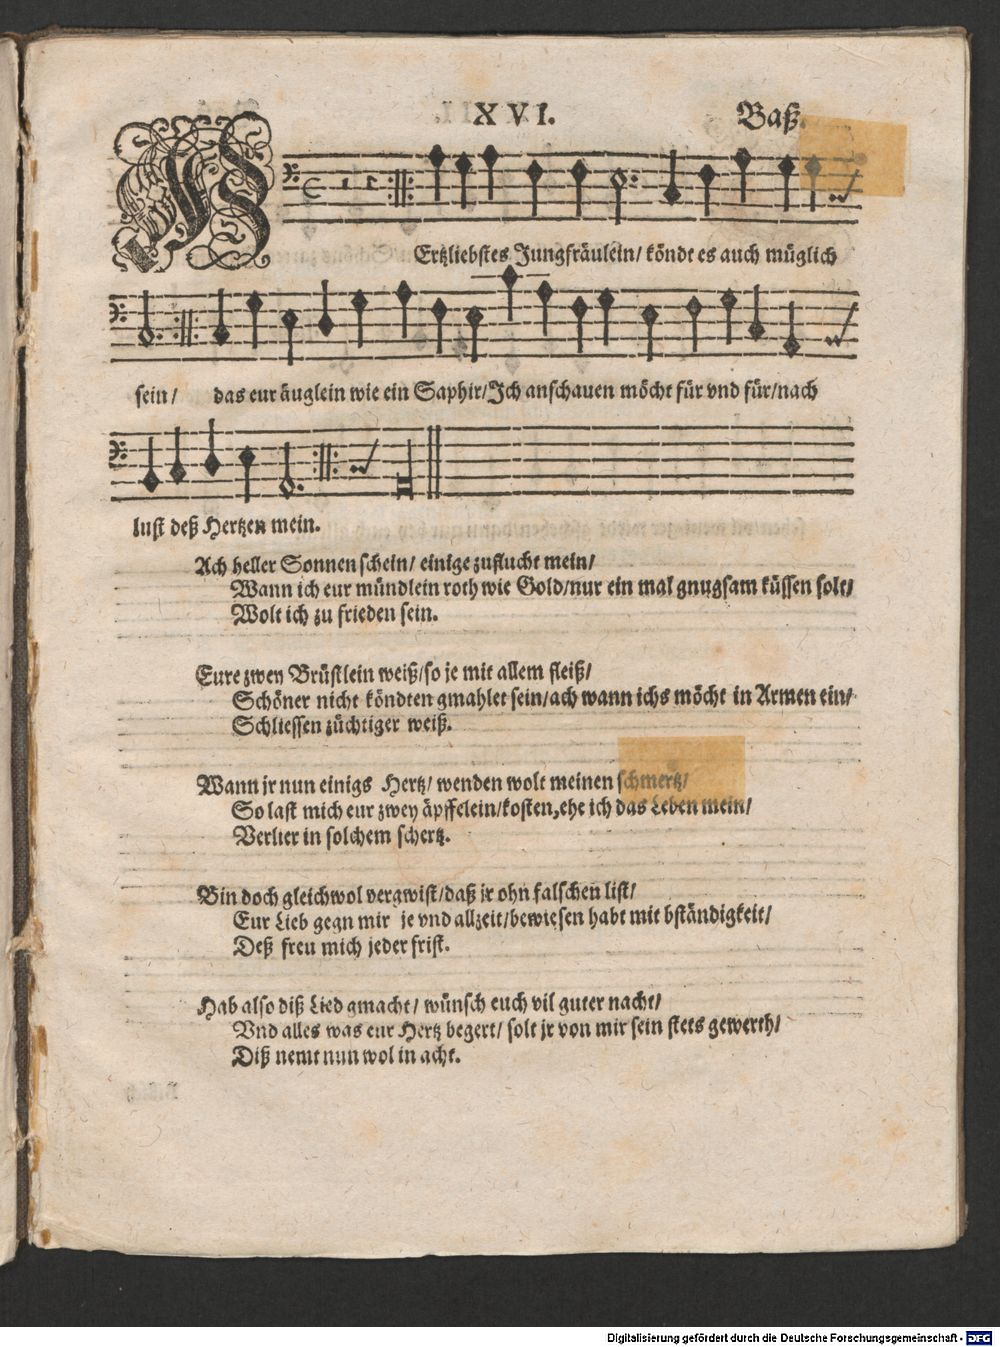 XVI. Baß.
HErtzliebstes Jungfräulein/ köndt es auch müglich
sein/ das eur äuglein wie ein Saphir/Ich anschauen möcht für vnd für/nach
lust deß Hertzen mein.
Ach heller Sonnenschein/ einige zuflucht mein/
Wann ich eur mündlein roth wie Gold/nur ein mal gnugsam küssen solt/
Wolt ich zu frieden sein.
Eure zwey Brüstlein weiß/so je mit allem fleiß/
Schöner nicht köndten gmahlet sein/ach wann ichs möcht in Armen ein/
Schliessen züchtiger weiß.
Wann jr nun einigs Hertz/ wenden wolt meinen schmertz/
So last mich eur zwey äpffelein/kosten,ehe ich das Leben mein/
Verlier in solchem schertz.
Bin doch gleichwol vergwist/daß jr ohn falschen list/
Eur Lieb gegn mir je vnd allzeit/bewiesen habt mit bständigkeit/
Deß freu mich jeder frist.
Hab also diß Lied gmacht/ wünsch euch vil guter nacht/
Vnd alles was eur Hertz begert/ solt jr von mir sein stets gewerth/
Diß nemt nun wol in acht.
Digitalisierung gefördert durch die Deutsche Forschungsgemeinschaft - DFG